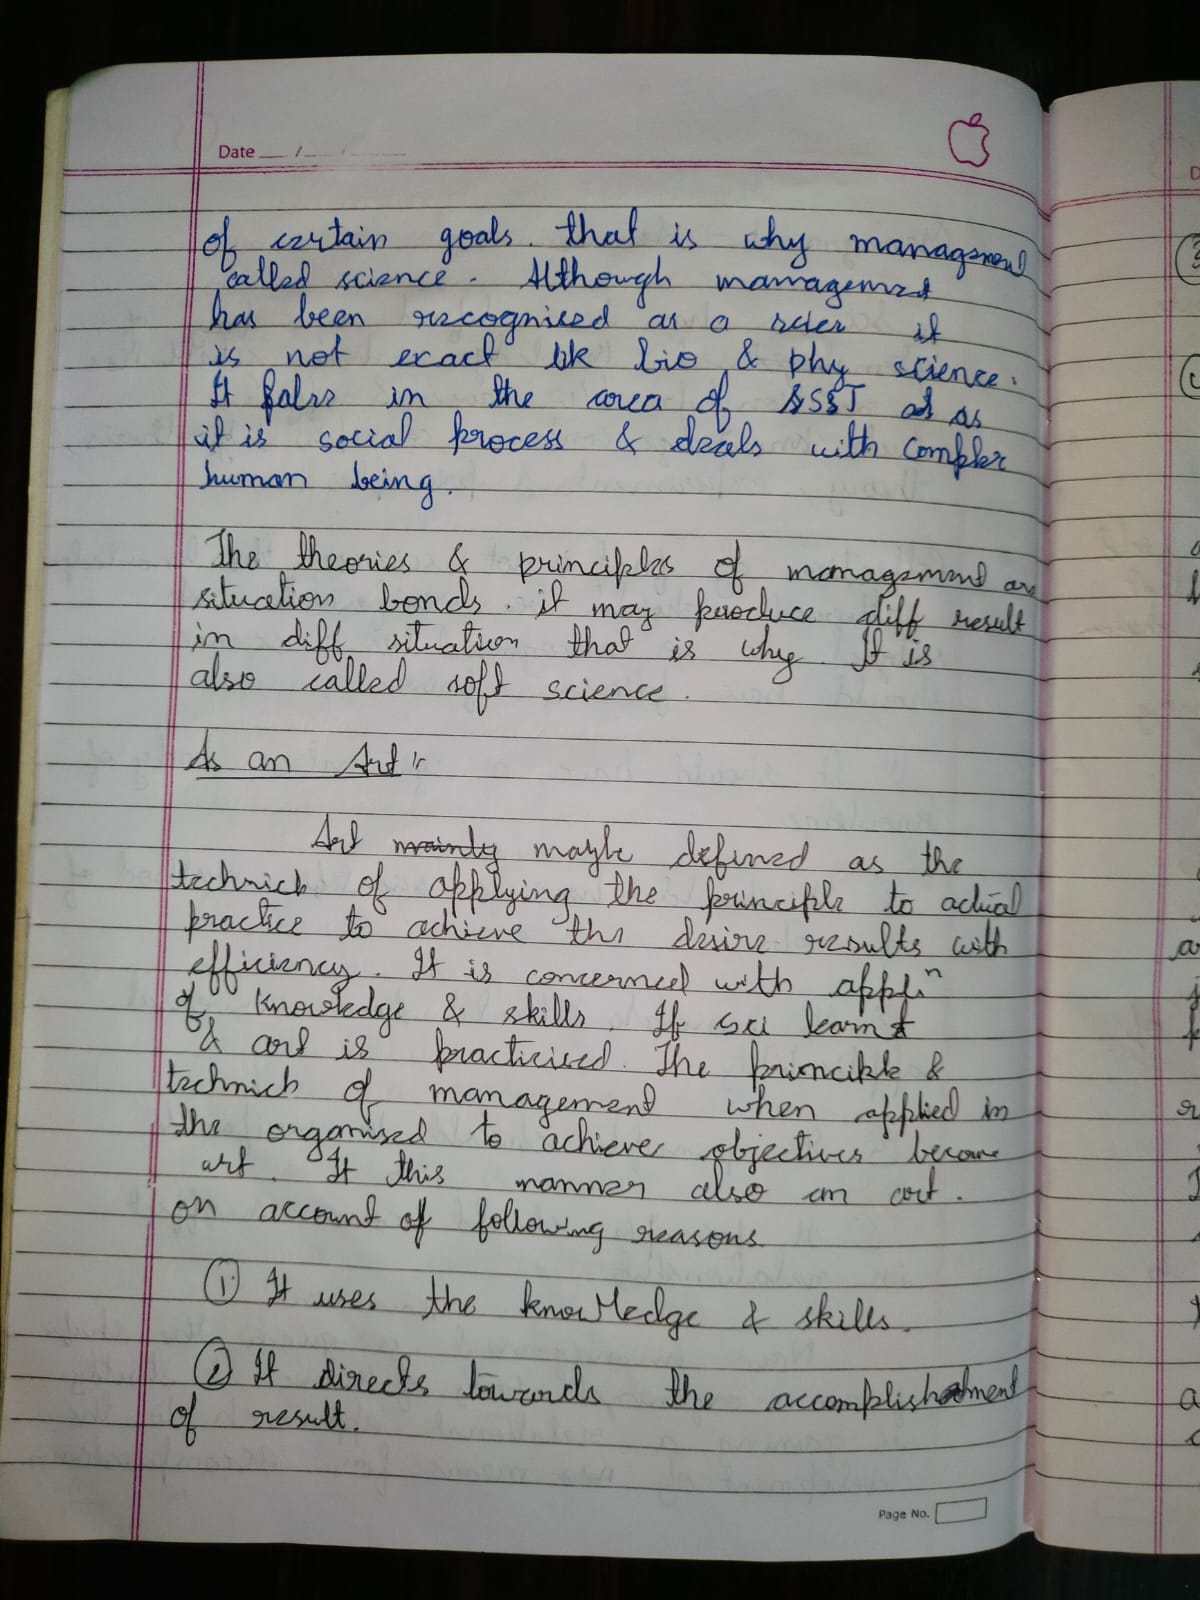 Date __/__/____
of certain goals. that is why management
called science. Although management
has been recognised as a scien it
is not exact lik bio & phy science.
It falls in the area of SSST as as
it is social process & deals with complex
human being.
The theories & principles of management are
situation bonds. it may produce diff result
in diff situation that is why. It is
also called soft science.
As an Art :-
Art mainly maybe defined as the
technick of applying the principle to actual
practice to achieve the desire results with
efficiency. It is concerned with applin
of knowledge & skills. If sci learnt
& art is practicised. The principle &
technick of management when applied in
the organised to achieve objectives become
art. It this manner also an art.
on account of following reasons
① It uses the knowledge & skills.
② It directs towards the accomplishment
of result.
Page No.